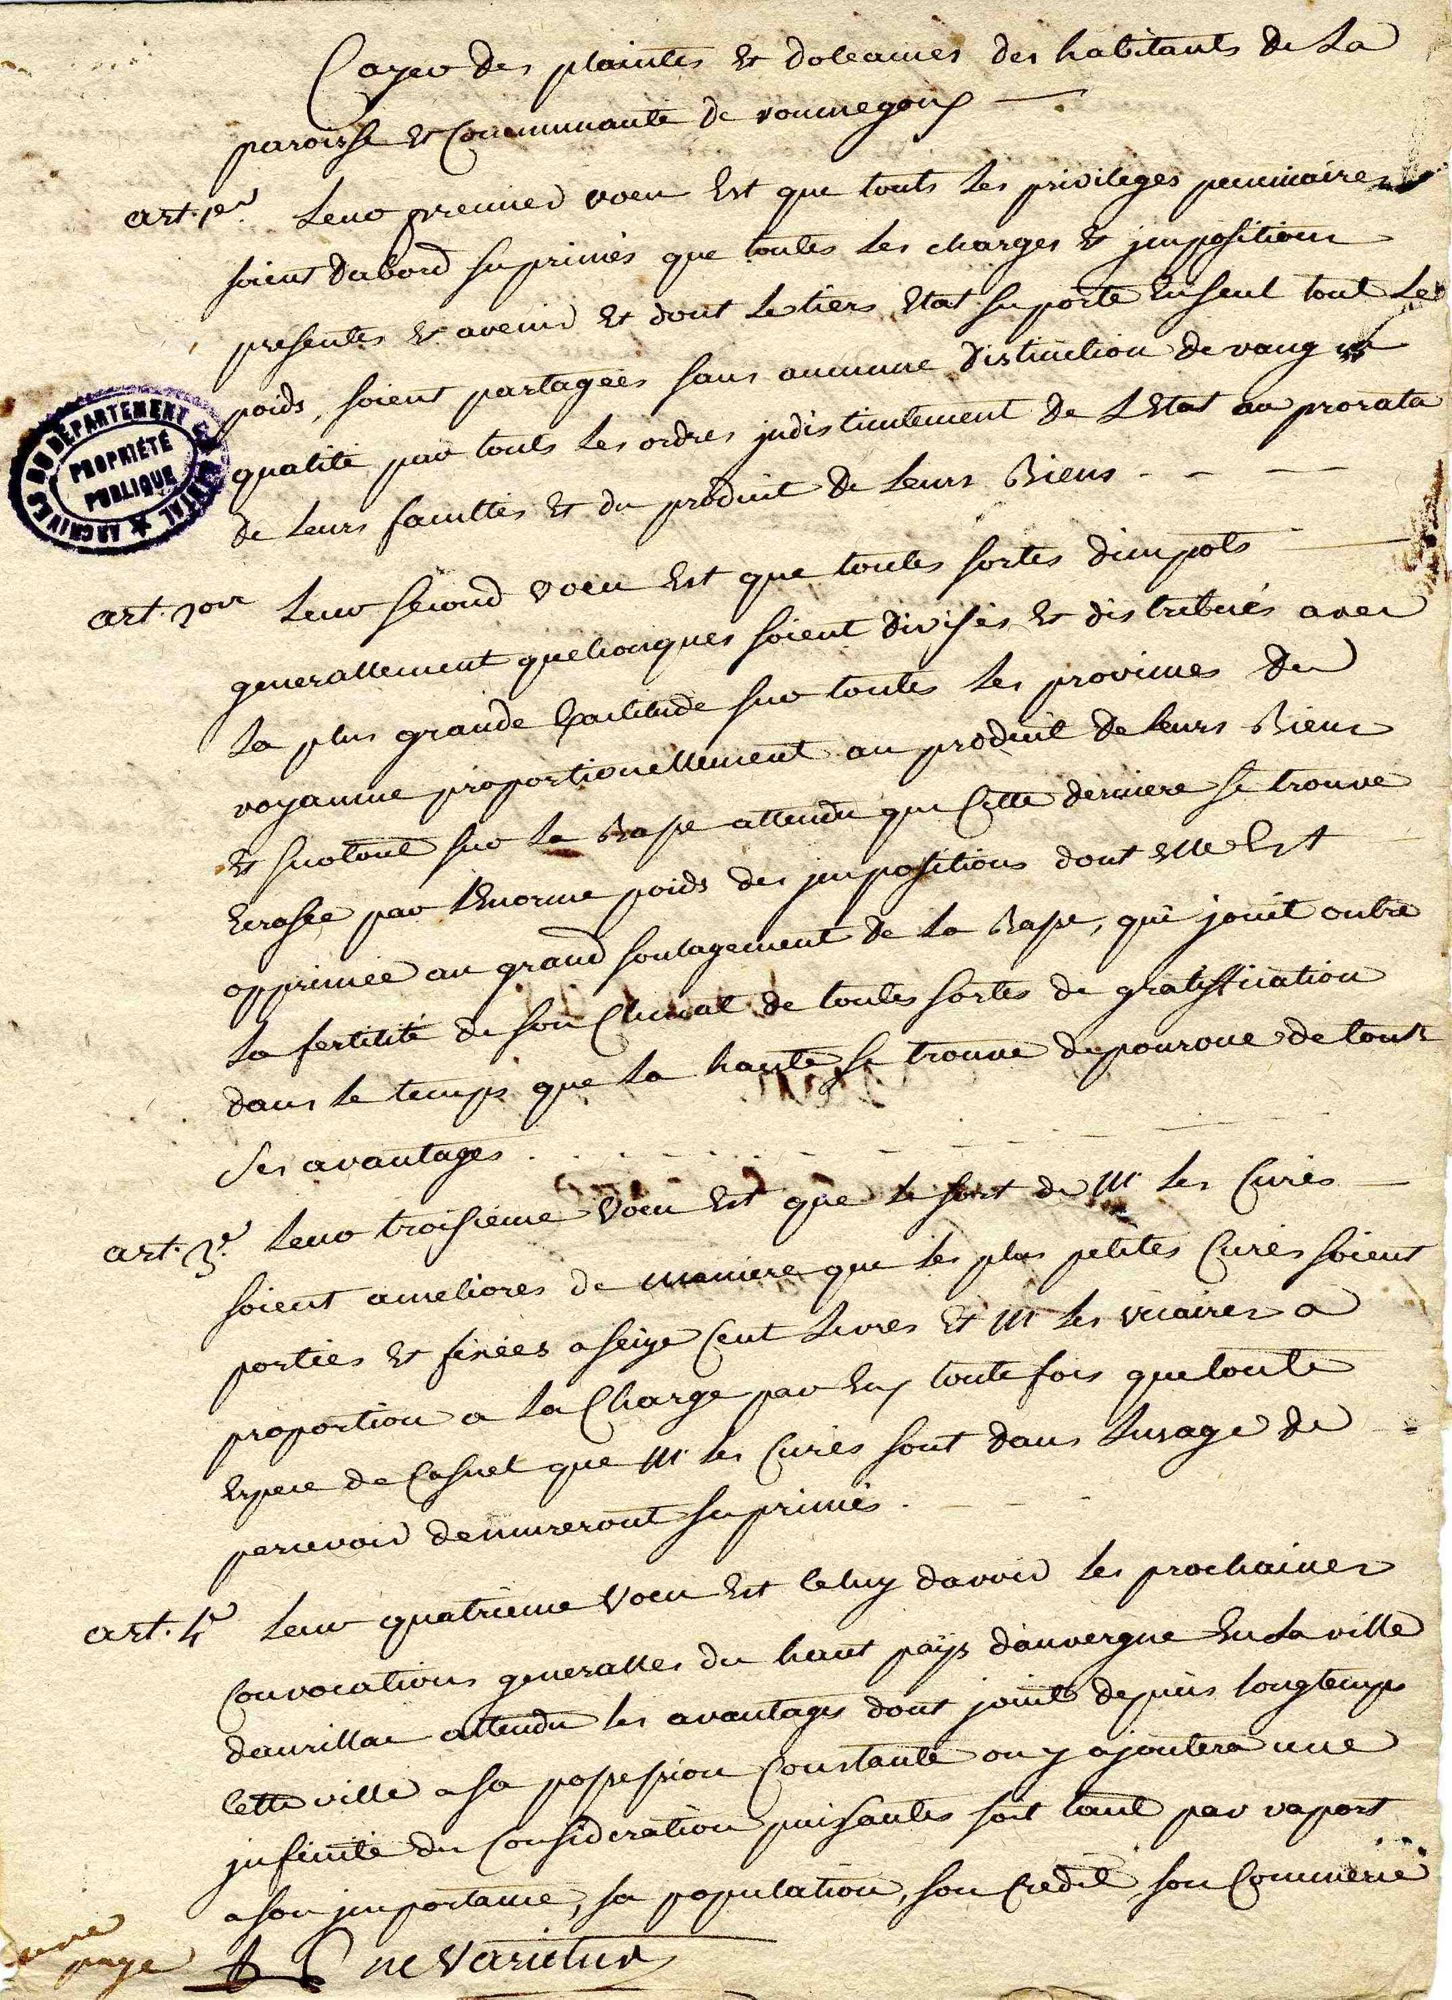 Cayer des plaintes et doleances des habitants de La
paroisse et Communauté de roumegoux
art. 1er. Leur premier voeu Est que touts Les privileges pecuniaires
soient dabord suprimés que toutes Les charges et jmpositions
presentes et avenir et dont Le tiers Etat suporte En seul tout Le
poids, soient partagées sans aucunne distinction de rang
qualité par touts Les ordres jndistinctement de L'Etat au prorata
de Leurs facultés et du produit de Leurs Biens
art. 2me Leur second voeu Est que toutes sortes dimpots
generallement quelconques soient divisés et distribués avec
La plus grande Exactitude sur toutes Les provinces du
royaume proportionellement au produit de Leurs Biens
et surtout sur La Basse attendu que Cette derniere se trouve
Ecrasée par l'Enorme poids des jmpositions dont elle Est
opprimée au grand soulagement de La Basse, qui jouit outre
La fertilité de son Climat de toutes sortes de gratiffication
dans Le temps que La haute se trouve depourvue de touts
Ses avantages
art. 3e. Leur troisieme voeu Est que Le sort de Mrs Les Curés
soient ameliorés de maniere que Les plus petites Cures soient
portées et fixées a seize Cent Livres et Mrs Les vicaires a
proportion a La Charge par Eux toutefois que toute
Espece de Casuel que Mrs Les Curés sont dans Lusage de
percevoir demureront suprimés
art. 4e Leur quatrieme voeu Est celuy davoir Les prochaines
Convocations generalles du haut païs dauvergne En La ville
daurillac attendu Les avantages dont jouit depuis longtemps
Cette ville a sa possession Constante on y ajoutera une
jnfinité de Considerations puisantes soit tant par raport
a son jmportance, sa population, son Credit son Commerce
une
page
ne Varietur
ARCHIVES DU DEPARTEMENT DU CANTAL
PROPRIÉTÉ
PUBLIQUE